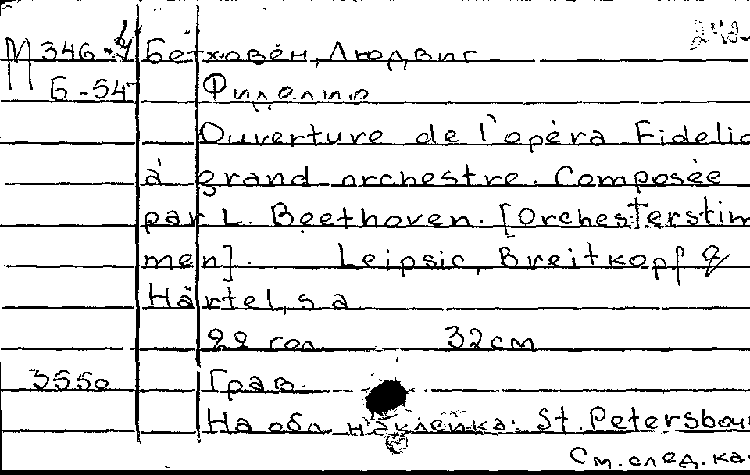 М 346-4 Бетховен, Людвиг
Б-54 Фиделио
Ouverture de l'opéra Fidelio
à grand orchestre. Composée
par L. Beethoven. [Orchesterstim
men]. Leipsic, Breitkopf &
Härtel, s a
22 гол 32 см
3550 Грав.
На обл наклейка: St. Petersbou
См. след. ка